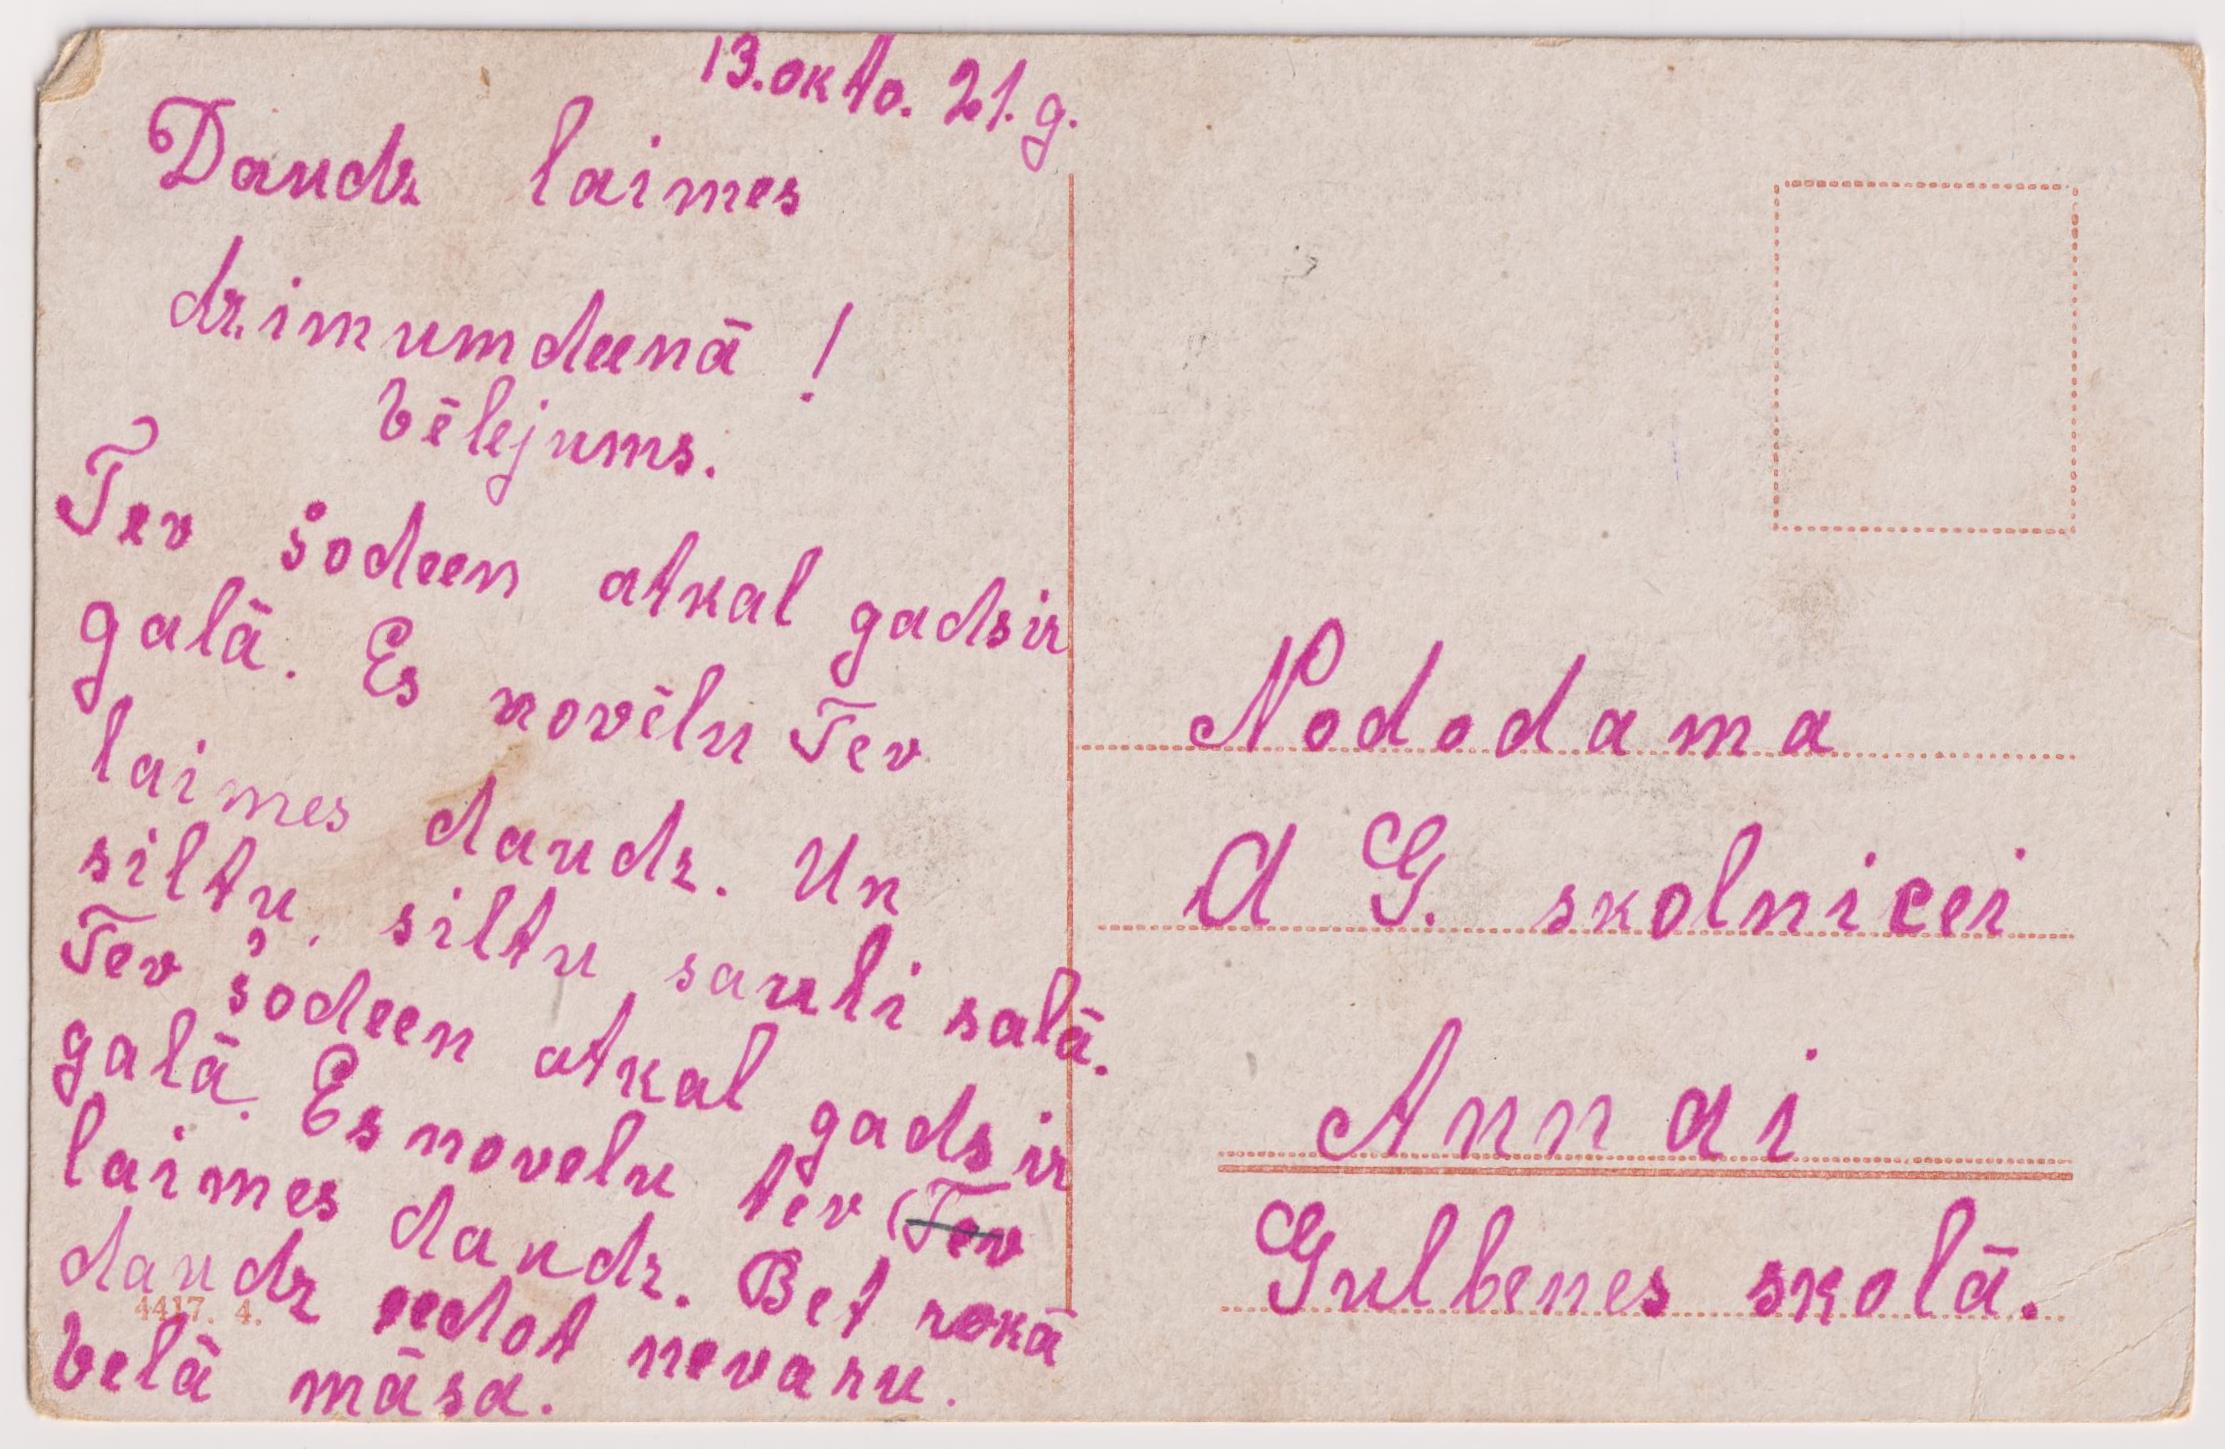 13.okto. 21. g.
Daudz laimes
dzimumdeenā !
Vēlejums.
Tev šodeen atkal gads ir
galā. Es novēlu Tev
laimes daudz. Un
siltu, siltu sauli salā.
Tev šodeen atkal gads ir
galā. Es novelu tev (Tev
laimes daudz. Bet rokā
daudz dot nevaru.
Velā māsa.
4417. 4.
Nododama
A G. skolnicei
Annai
Gulbenes skolā.